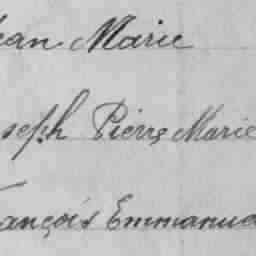 ean Marie
seph Pierre Marie
ançois Emmanue